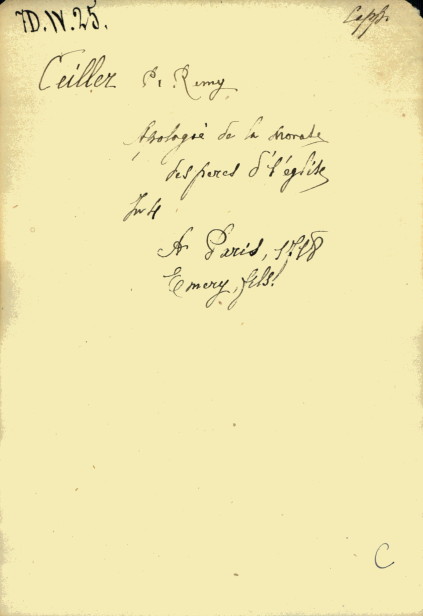 7D.IV.25.
Capp.
Ceiller P. Remy
Apologie de la morale
des peres d l'église
In 4
A Paris, 1718
Emery, fils.
C